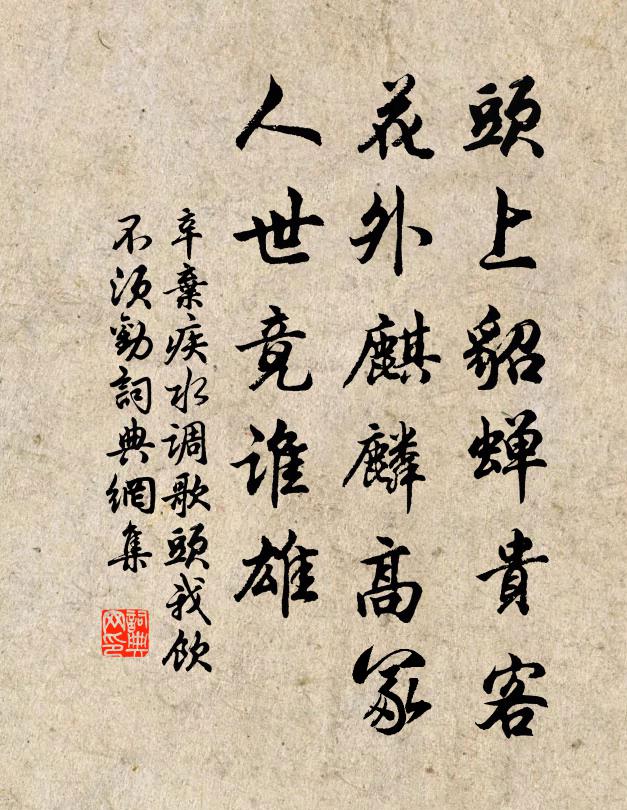 頭上貂蝉貴客
花外麒麟高冢
人世竟誰雄
辛棄疾水调歌頭我飲
不須勸詞典網集
詞典
网印